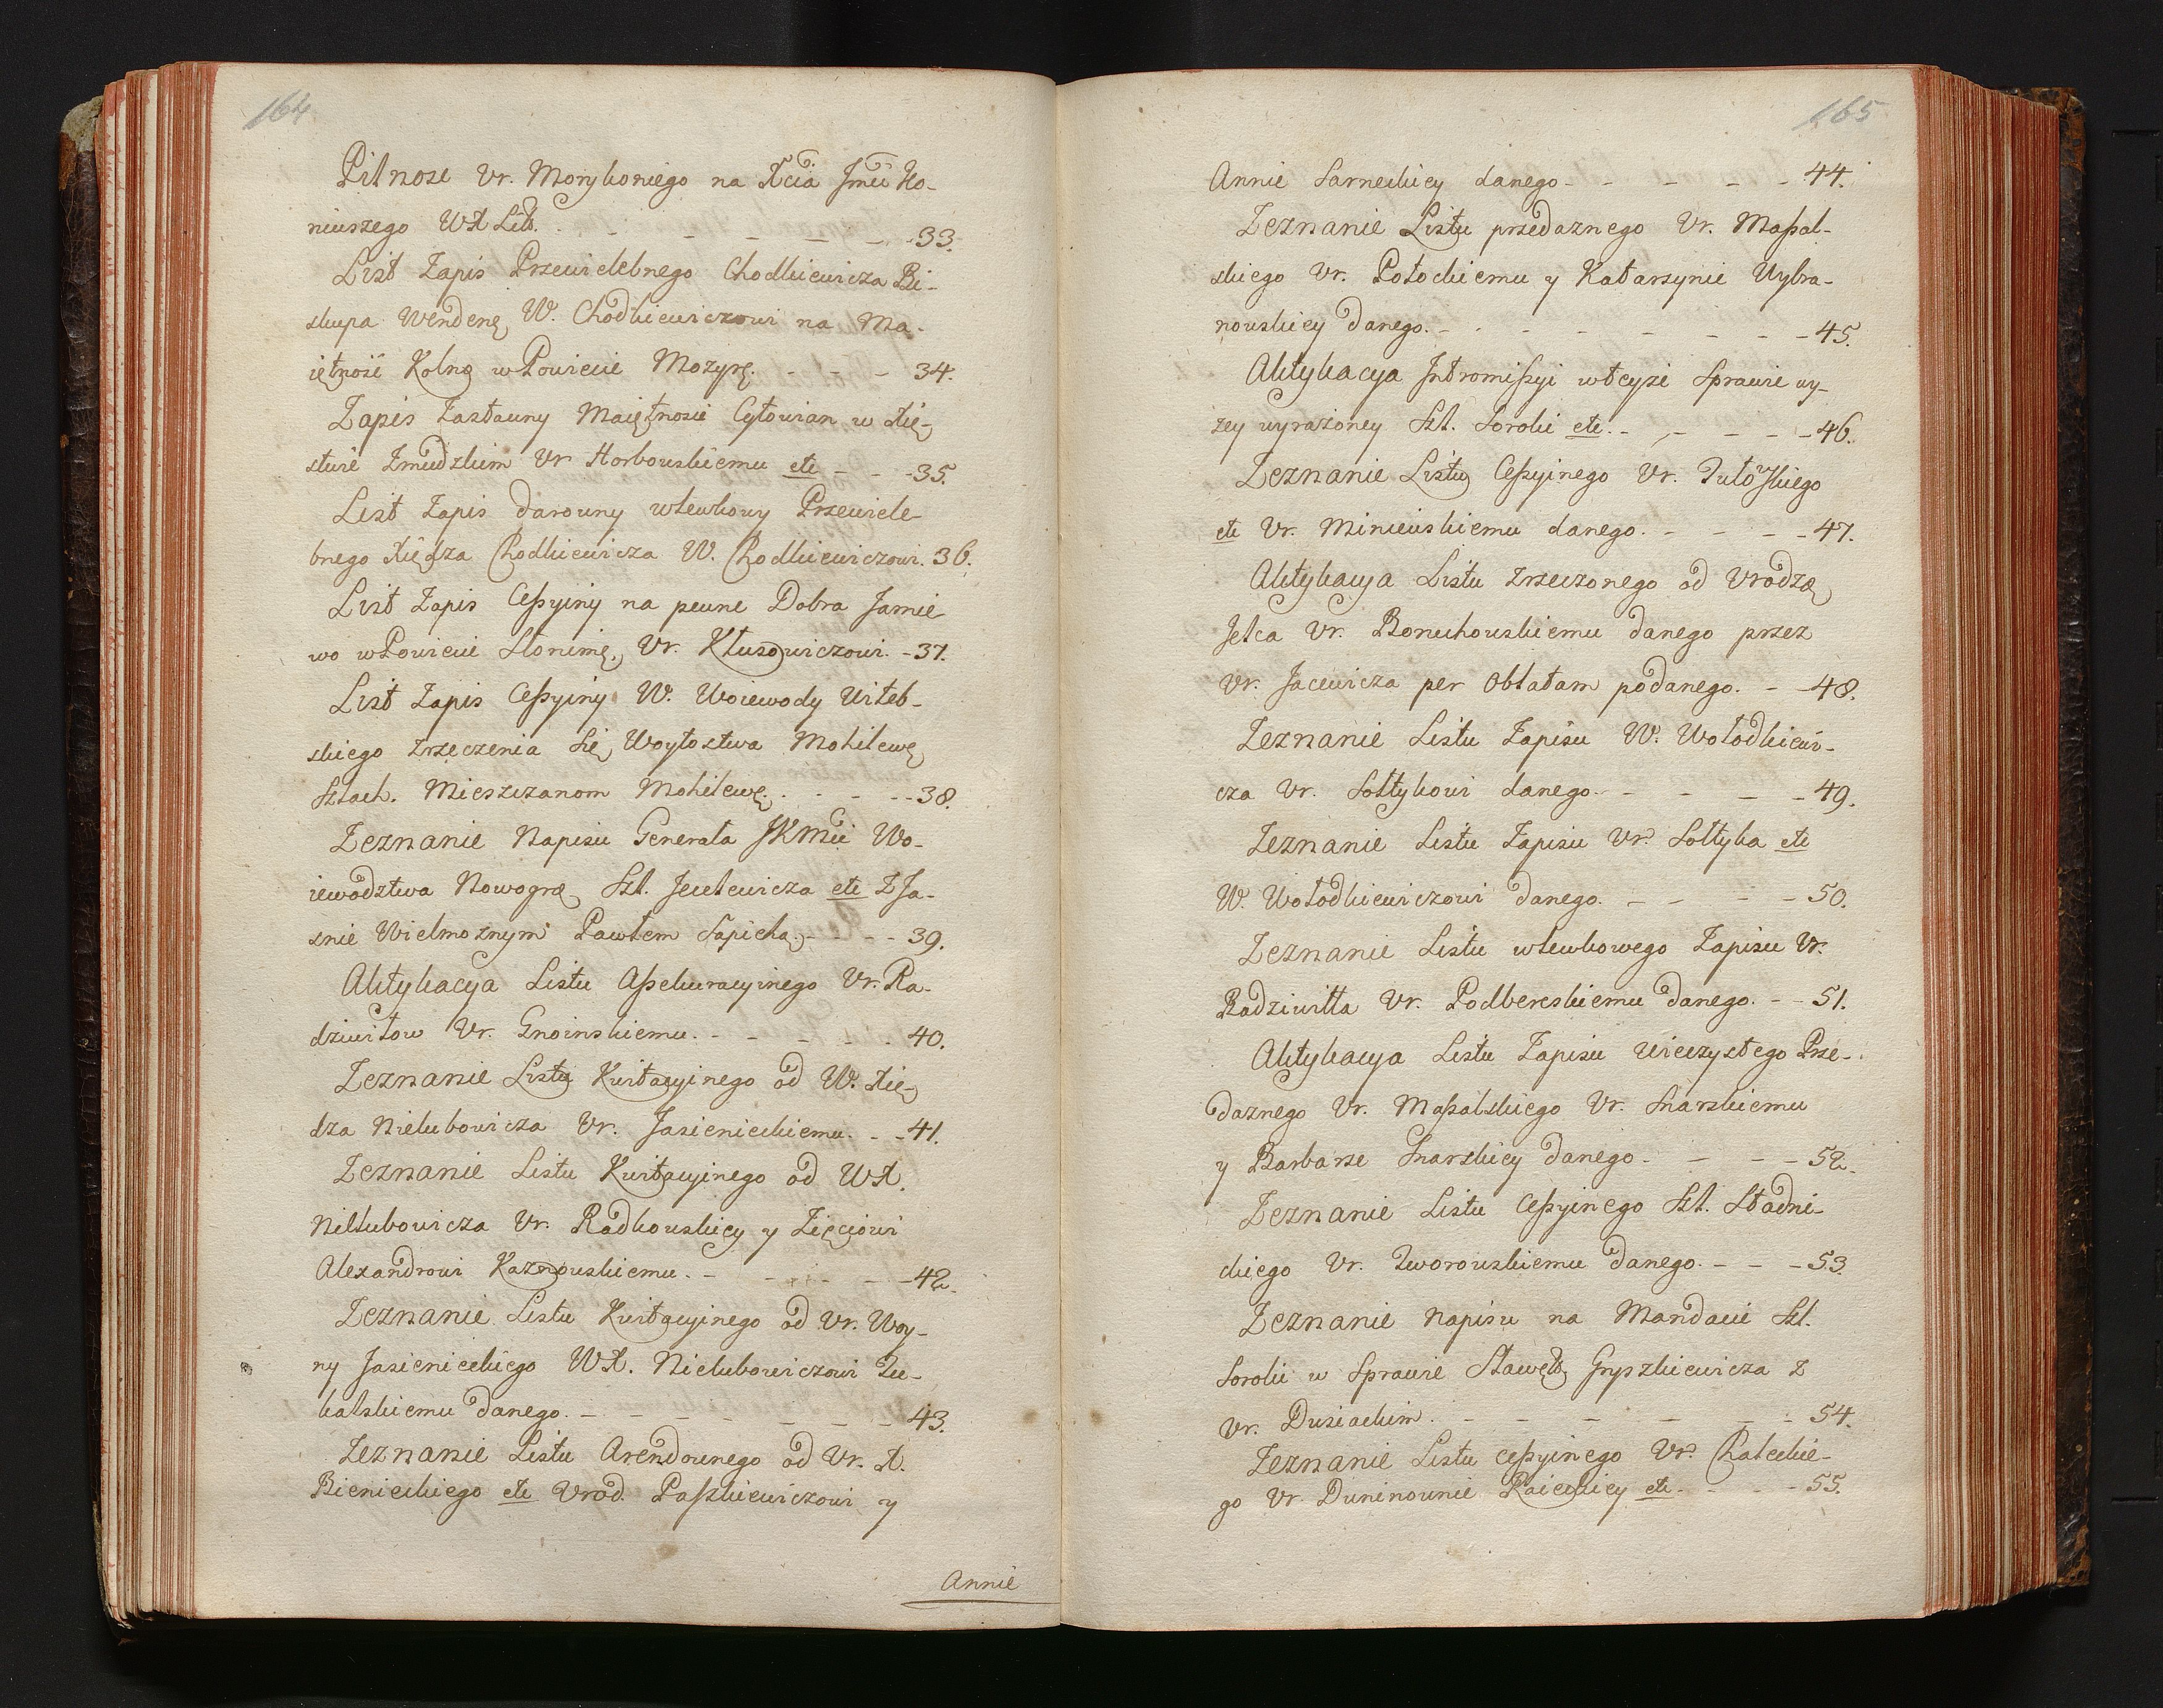 164
Pilnosc Vr. Morykoniego na Xcia Jmci Ko-
niuszego WX Litt. - - - - - 33.
List Zapis Przewielebnego Chodkiewicza Bi-
skupa Wendenę W. Chodkiewiczowi na Ma-
iętność Kolną w Powiecie Mozyrę. - - - 34.
Zapis Zastawny Maiętnosci Cytowian w Xię-
stwie Zmudzkim Vr Horbowskiemu etc - - - 35.
List Zapis darowny wlewkowy Przewiele-
bnego Xiędza Chodkiewicza W. Chodkiewiczowi. 36.
List Zapis Cessyiny na pewne Dobra Janie
wo w Powiecie Słonimę. Vr. Kłusowiczowi. - 37.
List Zapis Cessyiny W. Woiewody Witeb-
skiego zrzeczenia się Woytostwa Mohilewę
Szlach. Mieszczanom Mohilewę. - - - - 38.
Zeznanie Napisu Generała JKMci Wo-
iewodztwa Nowogrę Szl. Jewlewicza etc z Ja-
snie Wielmoznym Pawłem Sapiehą - - - 39.
Aktykacya Listu Assekuracyinego Vr. Ra-
dziwiłow Vr. Gnoinskiemu. - - - - - 40.
Zeznanie Listu Kwitacyinego od W. Xię-
dza Nielubowicza Vr. Jasienieckiemu. - - 41.
Zeznanie Listu Kwitacyinego od WX.
Nielubowicza Vr. Radkowskiey y Zięciowi
Alexandrowi Kaznowskiemu. - - - - - 42.
Zeznanie Listu Kwitacyinego od Vr. Woy-
ny Jasienieckiego WX. Nielubowiczowi Tu-
kalskiemu danego. - - - - - - - 43.
Zeznanie Listu Arendownego od Vr. X.
Bienieckiego etc Vrod. Paszkiewiczowi y
Annie
165
Annie Sarneckiey danego - - - - - 44.
Zeznanie Listu przedaznego Vr. Massal-
skiego Vr. Potockiemu y Katarzynie Wybra-
nowskiey danego. - - - - - - - 45.
Aktykacya Intromissyi w teyze Sprawie wy-
zey wyrazoney Szl. Soroki etc. - - - - - 46.
Zeznanie Listu Cessyinego Vr.
etc Vr. Miniewskiemu danego. - - - - 47.
Aktykacya Listu zrzeczonego od Vrodzę
Jelca Vr. Boruchowskiemu danego przez
Vr. Jacewicza per Oblatam podanego. - - 48.
Zeznanie Listu Zapisu W. Wołodkiewi-
cza Vr. Sołtykowi danego. - - - - - 49.
Zeznanie Listu Zapisu Vr. Sołtyka etc
W. Wołodkiewiczowi danego. - - - - 50.
Zeznanie Listu wlewkowego Zapisu Vr.
Radziwiłła Vr. Podbereskiemu danego. - - 51.
Aktykacya Listu Zapisu Wieczystego Prze-
daznego Vr. Massalskiego Vr. Snarskiemu
y Barbarze Snarskiey danego - - - - 52.
Zeznanie Listu Cessyinego Szl. Stadni-
ckiego Vr. Tworowskiemu danego. - - - 53.
Zeznanie Napisu na Mandacie Szl.
Soroki w Sprawie Sławętę Gryszkiewicza z
Vr. Dusiackim. - - - - - - 54.
Zeznanie Listu cessyinego Vr. Chaleckie-
go Vr. Duninownie Raieckiey etc. - - - 55.